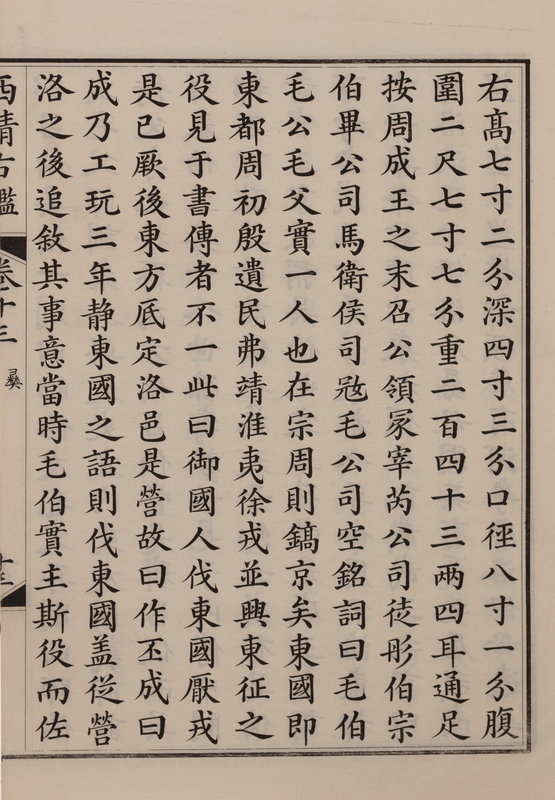 右髙七寸二分深四寸三分口徑八寸一分腹
圍二尺七寸七分重二百四十三兩四耳通足
按周成王之末召公領冢宰芮公司徒彤伯宗
伯畢公司馬衛侯司㓂毛公司空銘詞曰毛伯
毛公毛父實一人也在宗周則鎬京矣東國即
東都周初殷遺民弗靖淮夷徐戎並興東征之
役見于書傳者不一此曰御國人伐東國厭戎
是已厥後東方厎定洛邑是營故曰作丕成曰
成乃工玩三年静東國之語則伐東國盖從營
洛之後追敘其事意當時毛伯實主斯役而佐
西清古鑑
卷十三
彝
十三